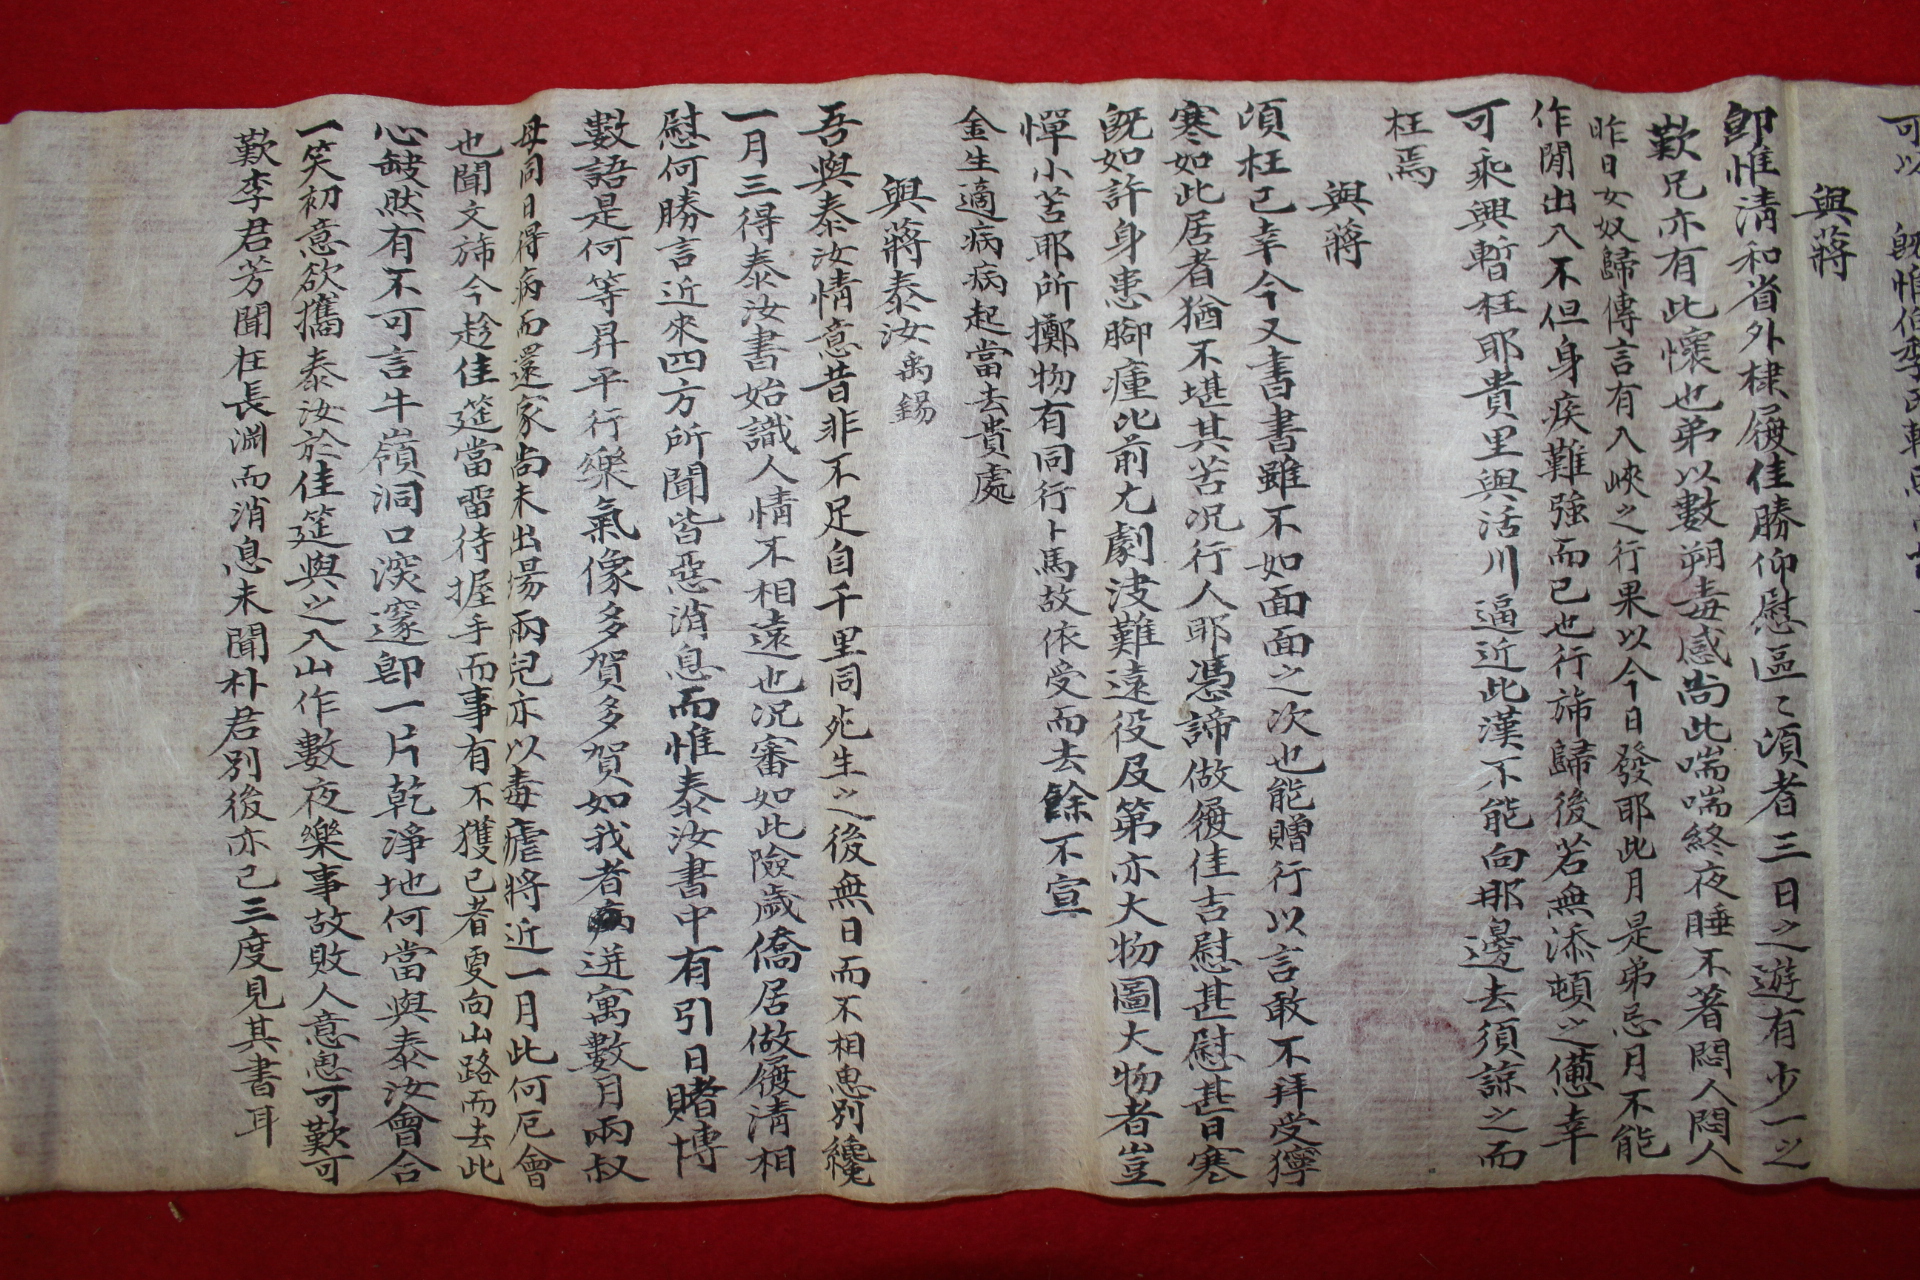 可以
與蔣
卽惟淸和省外棣履佳勝仰慰區〻頃者三日之遊有少一之
歎兄亦有此懷也弟以數朔毒感尙此喘喘終夜睡不著悶人悶人
昨日女奴歸傳言有入峽之行果以今日發耶此月是弟忌月不能
作閒出入不但身疾難強而已也行旆歸後若無添頓之憊幸
可乘興暫枉耶貴里與活川逼近此漢不能向那邊去須諒之而
枉焉
與蔣
頃枉已幸今又書書雖不如面面之次也能贈行以言敢不拜受獰
寒如此居者猶不堪其苦况行人耶憑諦做履佳吉慰甚慰甚日寒
旣如許身患脚瘇比前尤劇決難遠役及第亦大物圖大物者豈
憚小苦耶所擲物有同行卜馬故依受而去餘不宣
金生適病病起當去貴處
與蔣泰汝禹錫
吾與泰汝情意昔非不足自千里同死生之後無日而不相思別纔
一月三得泰汝書始識人情不相遠也况審如此險歲僑居做履淸相
慰何勝言近來四方所聞皆惡消息而惟泰汝書中有引日賭博
數語是何等昇平行樂氣像多賀多賀如我者病迸寓數月兩叔
母同日得病而還家尙未出場兩兒亦以毒瘧將近一月此何厄會
也聞文旆今趁佳筵當留待握手而事有不獲已者更向山路而去此
心缺然有不可言牛嶺洞口深邃卽一片乾淨地何當與泰汝會合
一笑初意欲攜泰汝於佳筵與之入山作數夜樂事故敗人意思可歎可
歎李君芳聞枉長淵而消息未聞朴君別後亦已三度見其書耳